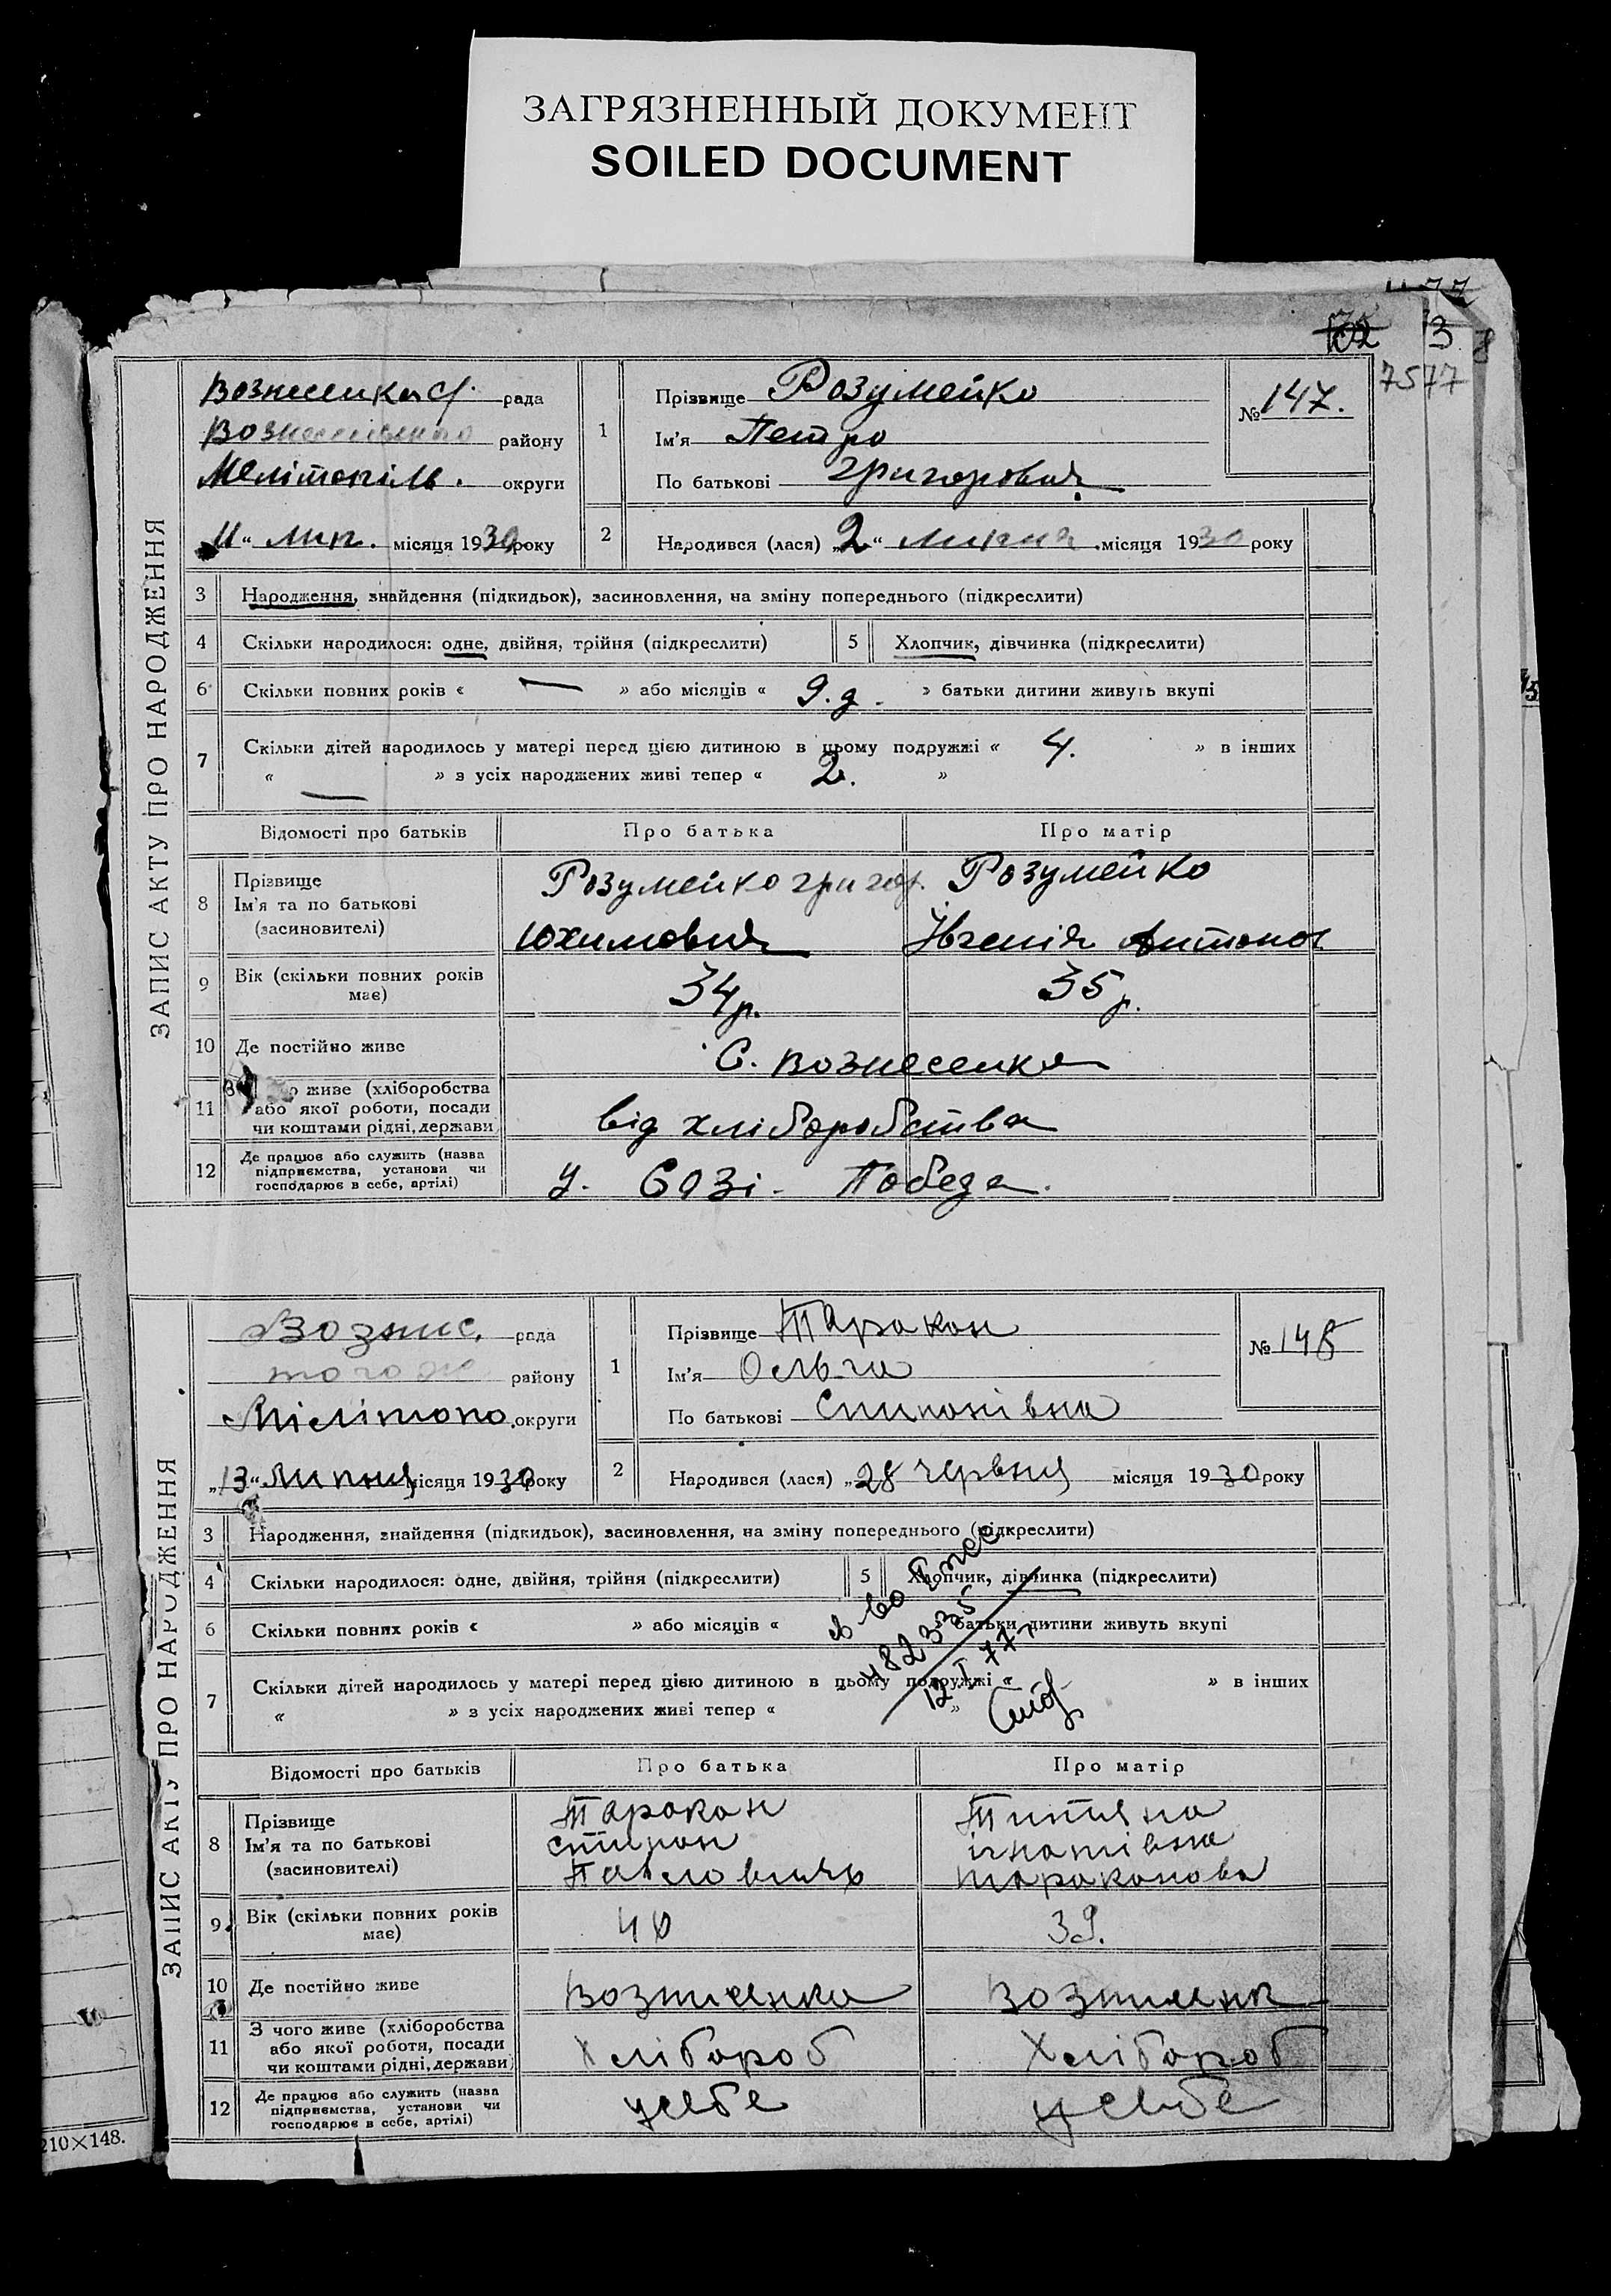 ЗАГРЯЗНЕННЫЙ ДОКУМЕНТ
SOILED DOCUMENT
7577
ЗАПИС АКТУ ПРО НАРОДЖЕННЯ
рада
району
Мелітопіль. округи
11 “ лип. місяця 1930 року
1
Прізвище Розумейко
Ім’я Петро
По батькові Григорович
№ 147.
2
Народився (лася) „2“ липня місяця 1930 року
3 Народження, знайдення (підкидьок), засиновлення, на зміну попереднього (підкреслити)
4 Скільки народилося: одне, двійня, трійня (підкреслити) 5 Хлопчик, дівчинка (підкреслити)
6 Скільки повних років « — » або місяців « 9.д. » батьки дитини живуть вкупі
7 Скільки дітей народилось у матері перед цією дитиною в цьому подружжі « 4. » в інших
« — » з усіх народжених живі тепер « 2. »
Відомості про батьків Про батька Про матір
8 Прізвище
Ім’я та по батькові
(засиновителі)
Розумейко Григор.
Юхимович
Розумейко
Антонов
9 Вік (скільки повних років має) 34 р. 35 р.
10 Де постійно живе С. Вознесенка
11 живе (хліборобства
або якої роботи, посади
чи коштами рідні, держави
від хліборобства
12 Де працює або служить (назва
підприємства, установи чи
господарює в себе, артілі)
У. Созі. Победа.
ЗАПИС АКТУ ПРО НАРОДЖЕННЯ
Вознис. рада
того ж району
Мілітопо. округи
„13“ Липня місяця 1930 року
1
Прізвище Таракан
Ім’я Ольга
По батькові Спиронівна
№ 148
2
Народився (лася) „28 червня місяця 1930 року
3 Народження, знайдення (підкидьок), засиновлення, на зміну попереднього (підкреслити)
4 Скільки народилося: одне, двійня, трійня (підкреслити) 5 Хлопчик, дівчинка (підкреслити)
6 Скільки повних років « » або місяців « батьки дитини живуть вкупі
7 Скільки дітей народилось у матері перед цією дитиною в цьому подружжі « » в інших
« » з усіх народжених живі тепер « »
482335
12 I 77 г.
Відомості про батьків Про батька Про матір
8 Прізвище
Ім’я та по батькові
(засиновителі)
Таракан
Спирон
Павловичь
Титяна
ігнатівна
Тараканова
9 Вік (скільки повних років має) 40 39.
10 Де постійно живе
11 З чого живе (хліборобства
або якої роботи, посади
чи коштами рідні, держави)
Хлібороб Хлібороб
12 Де працює або служить (назва
підприємства, установи чи
господарює в себе, артілі)
усебе усебе
210×148.